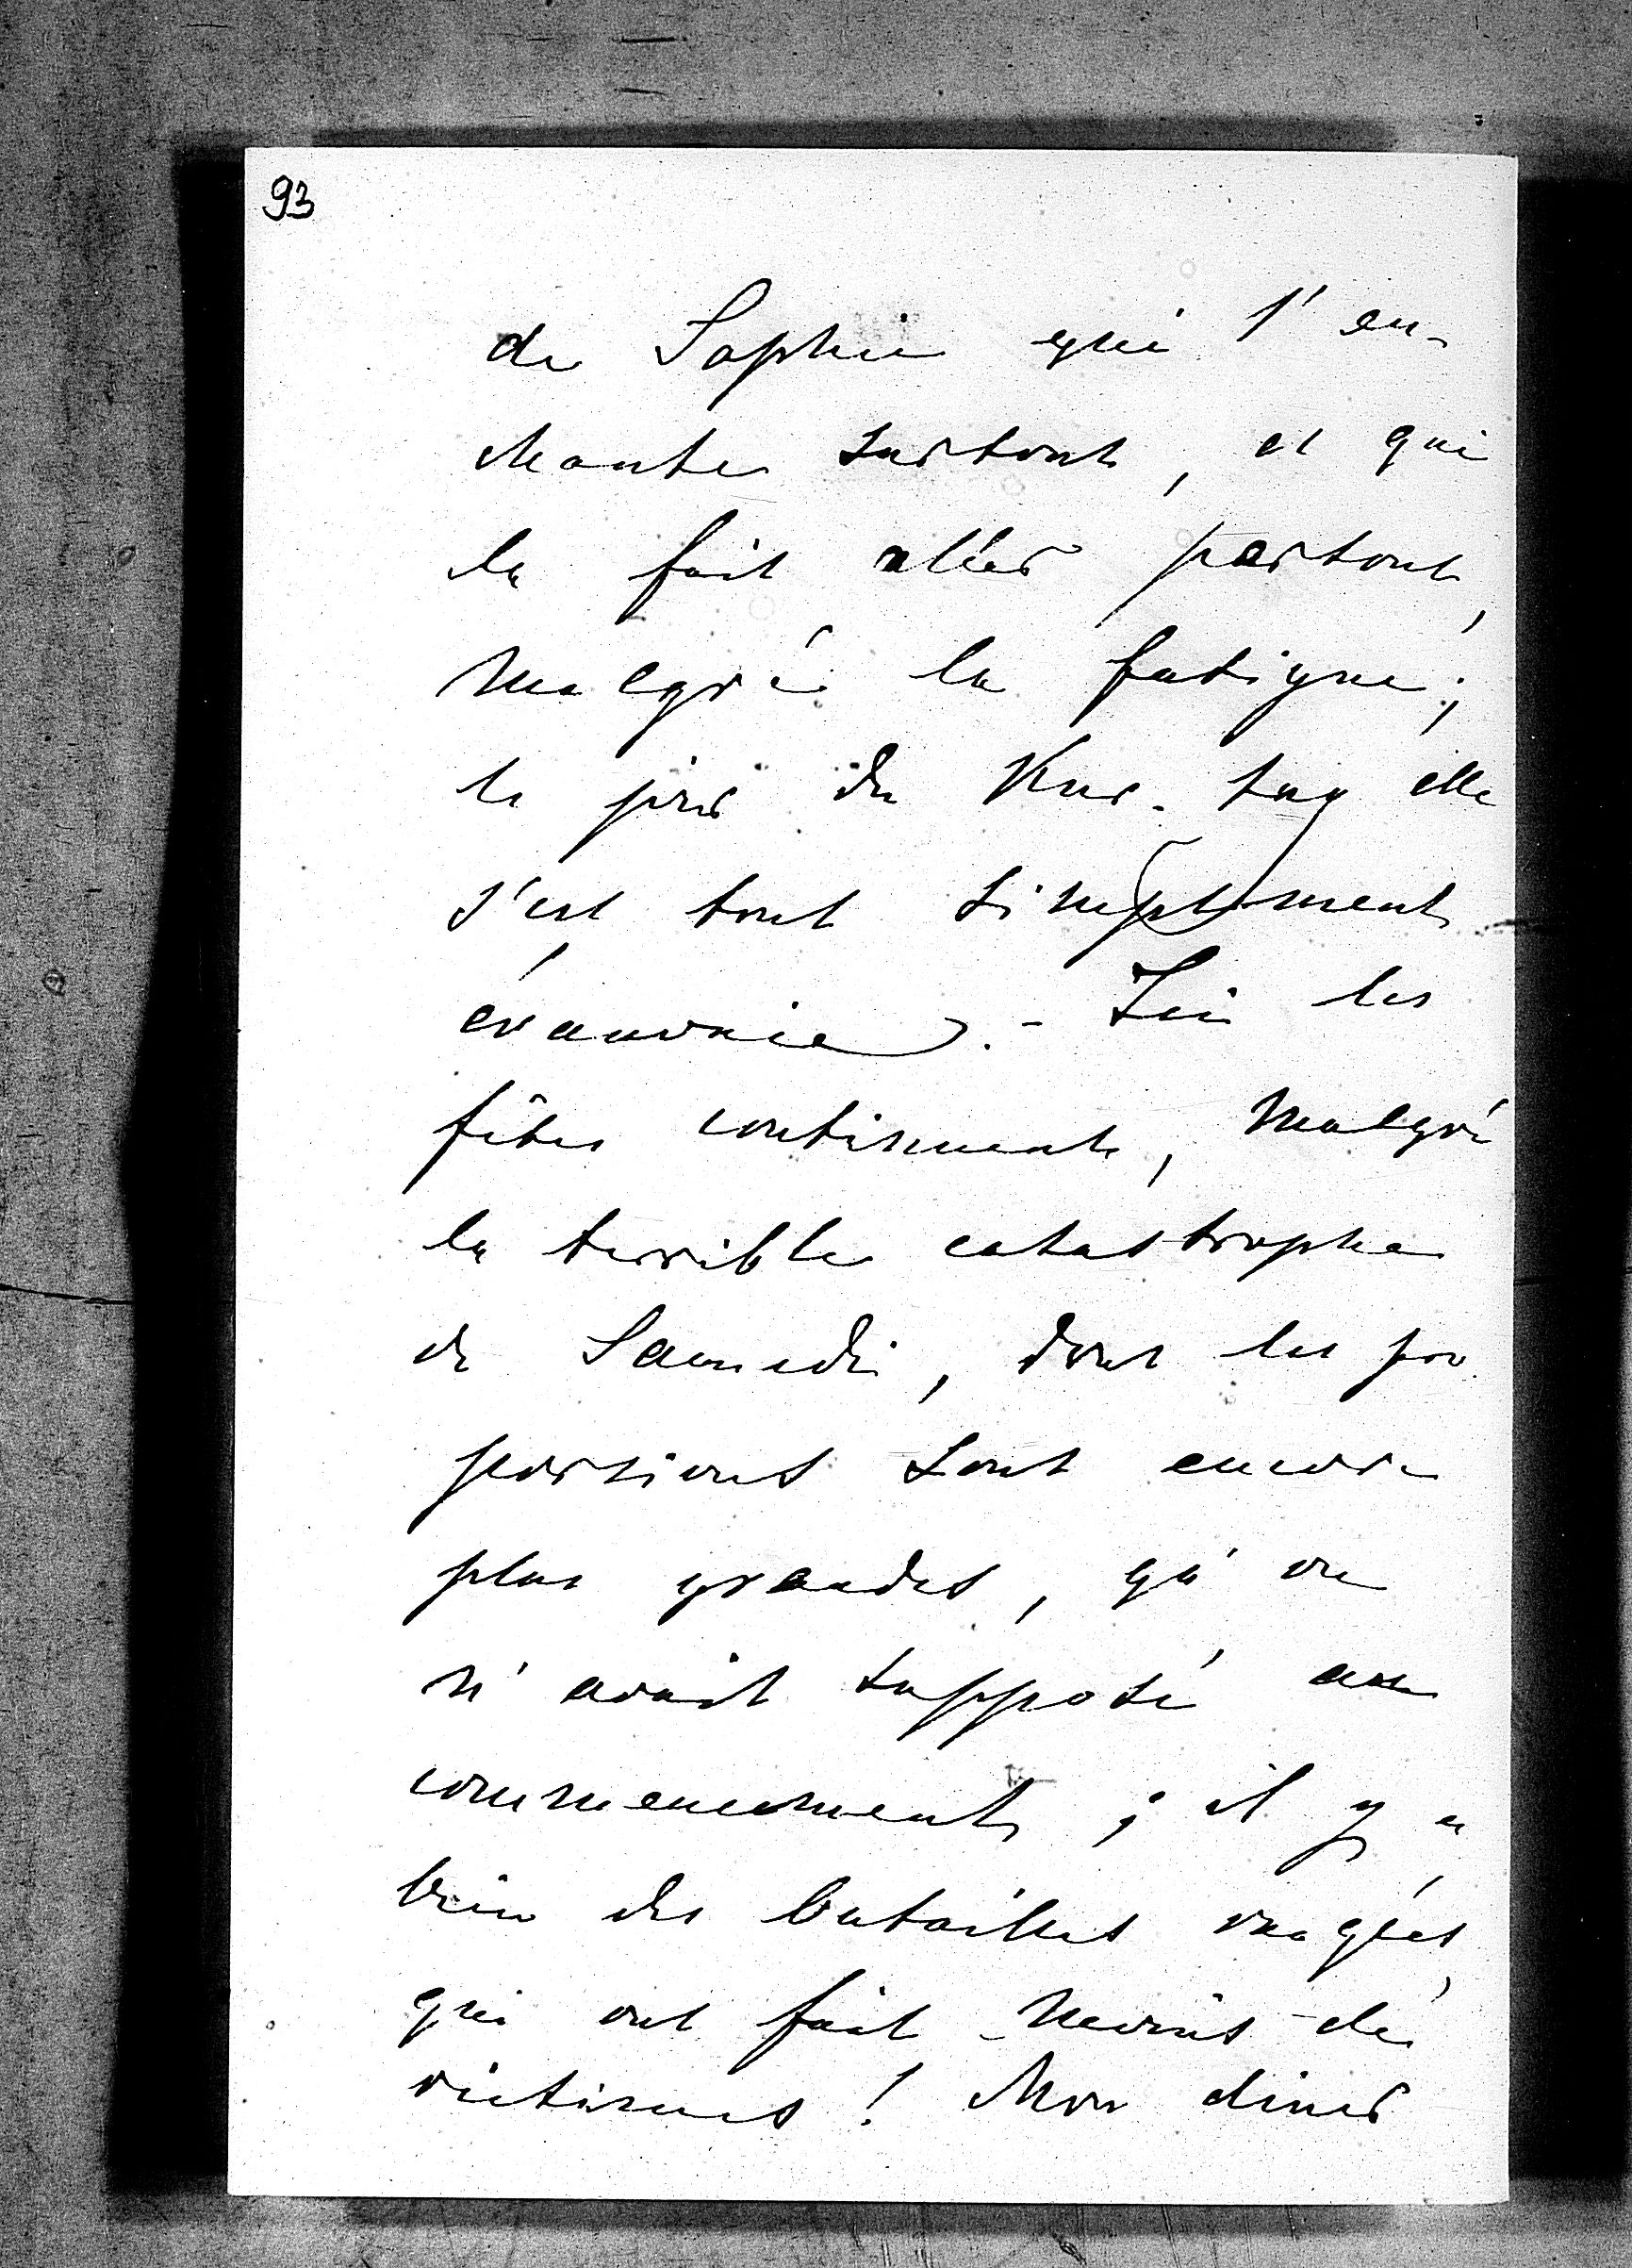 93
de Sophie qui l'en-
chante surtout, et qui
la fait aller partout,
malgré la fatigue;
le jour du Kur-tag elle
s'est tout simplement
évanouie. - Ici les
fêtes continuent, malgré
la terrible catastrophe
de Samedi, dont les pro
portions sont encore
plus grandes, qu'on
n'avait supposé au
commencement; il y a
bien des batailles rangées,
qui ont fait moins de
victimes! Mon diner